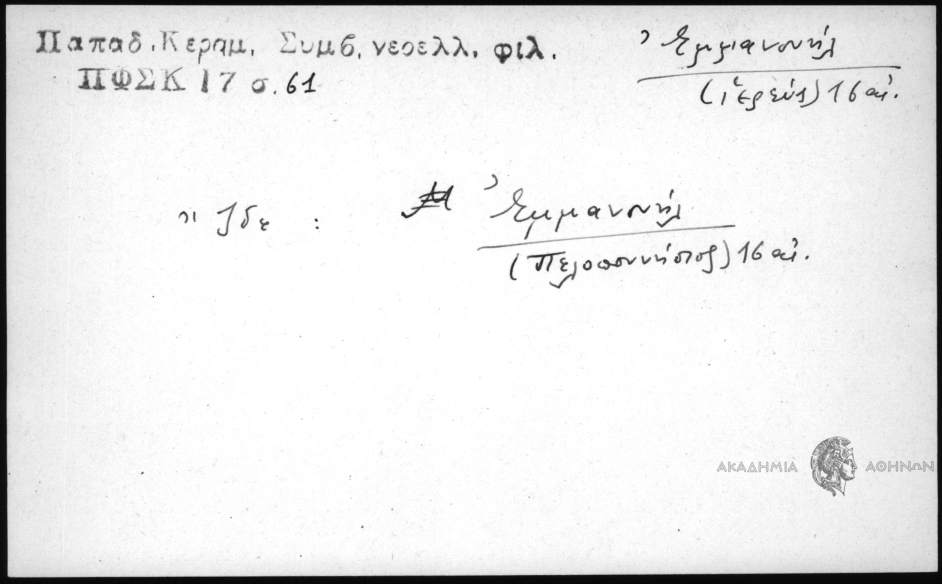 Παπαδ. Κεραμ. Συμβ. νεοελλ. φιλ.
ΠΦΣΚ 17 σ. 61
Ἐμμανουήλ
(ἱερεύς) 16 αἰ.
Ἴδε : Ἐμμανουήλ
(Πελοποννήσιος) 16 αἰ.
ΑΚΑΔΗΜΙΑ ΑΘΗΝΩΝ